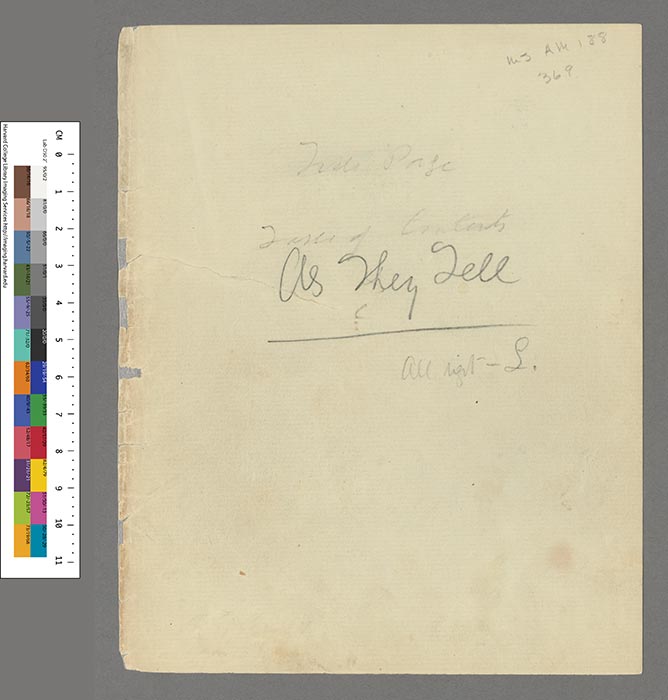 MS AM 188
369
Title Page
Table of Contents
As They Tell
All right – L.
CM 0 1 2 3 4 5 6 7 8 9 10 11
Harvard College Library Imaging Services http://imaging.harvard.edu